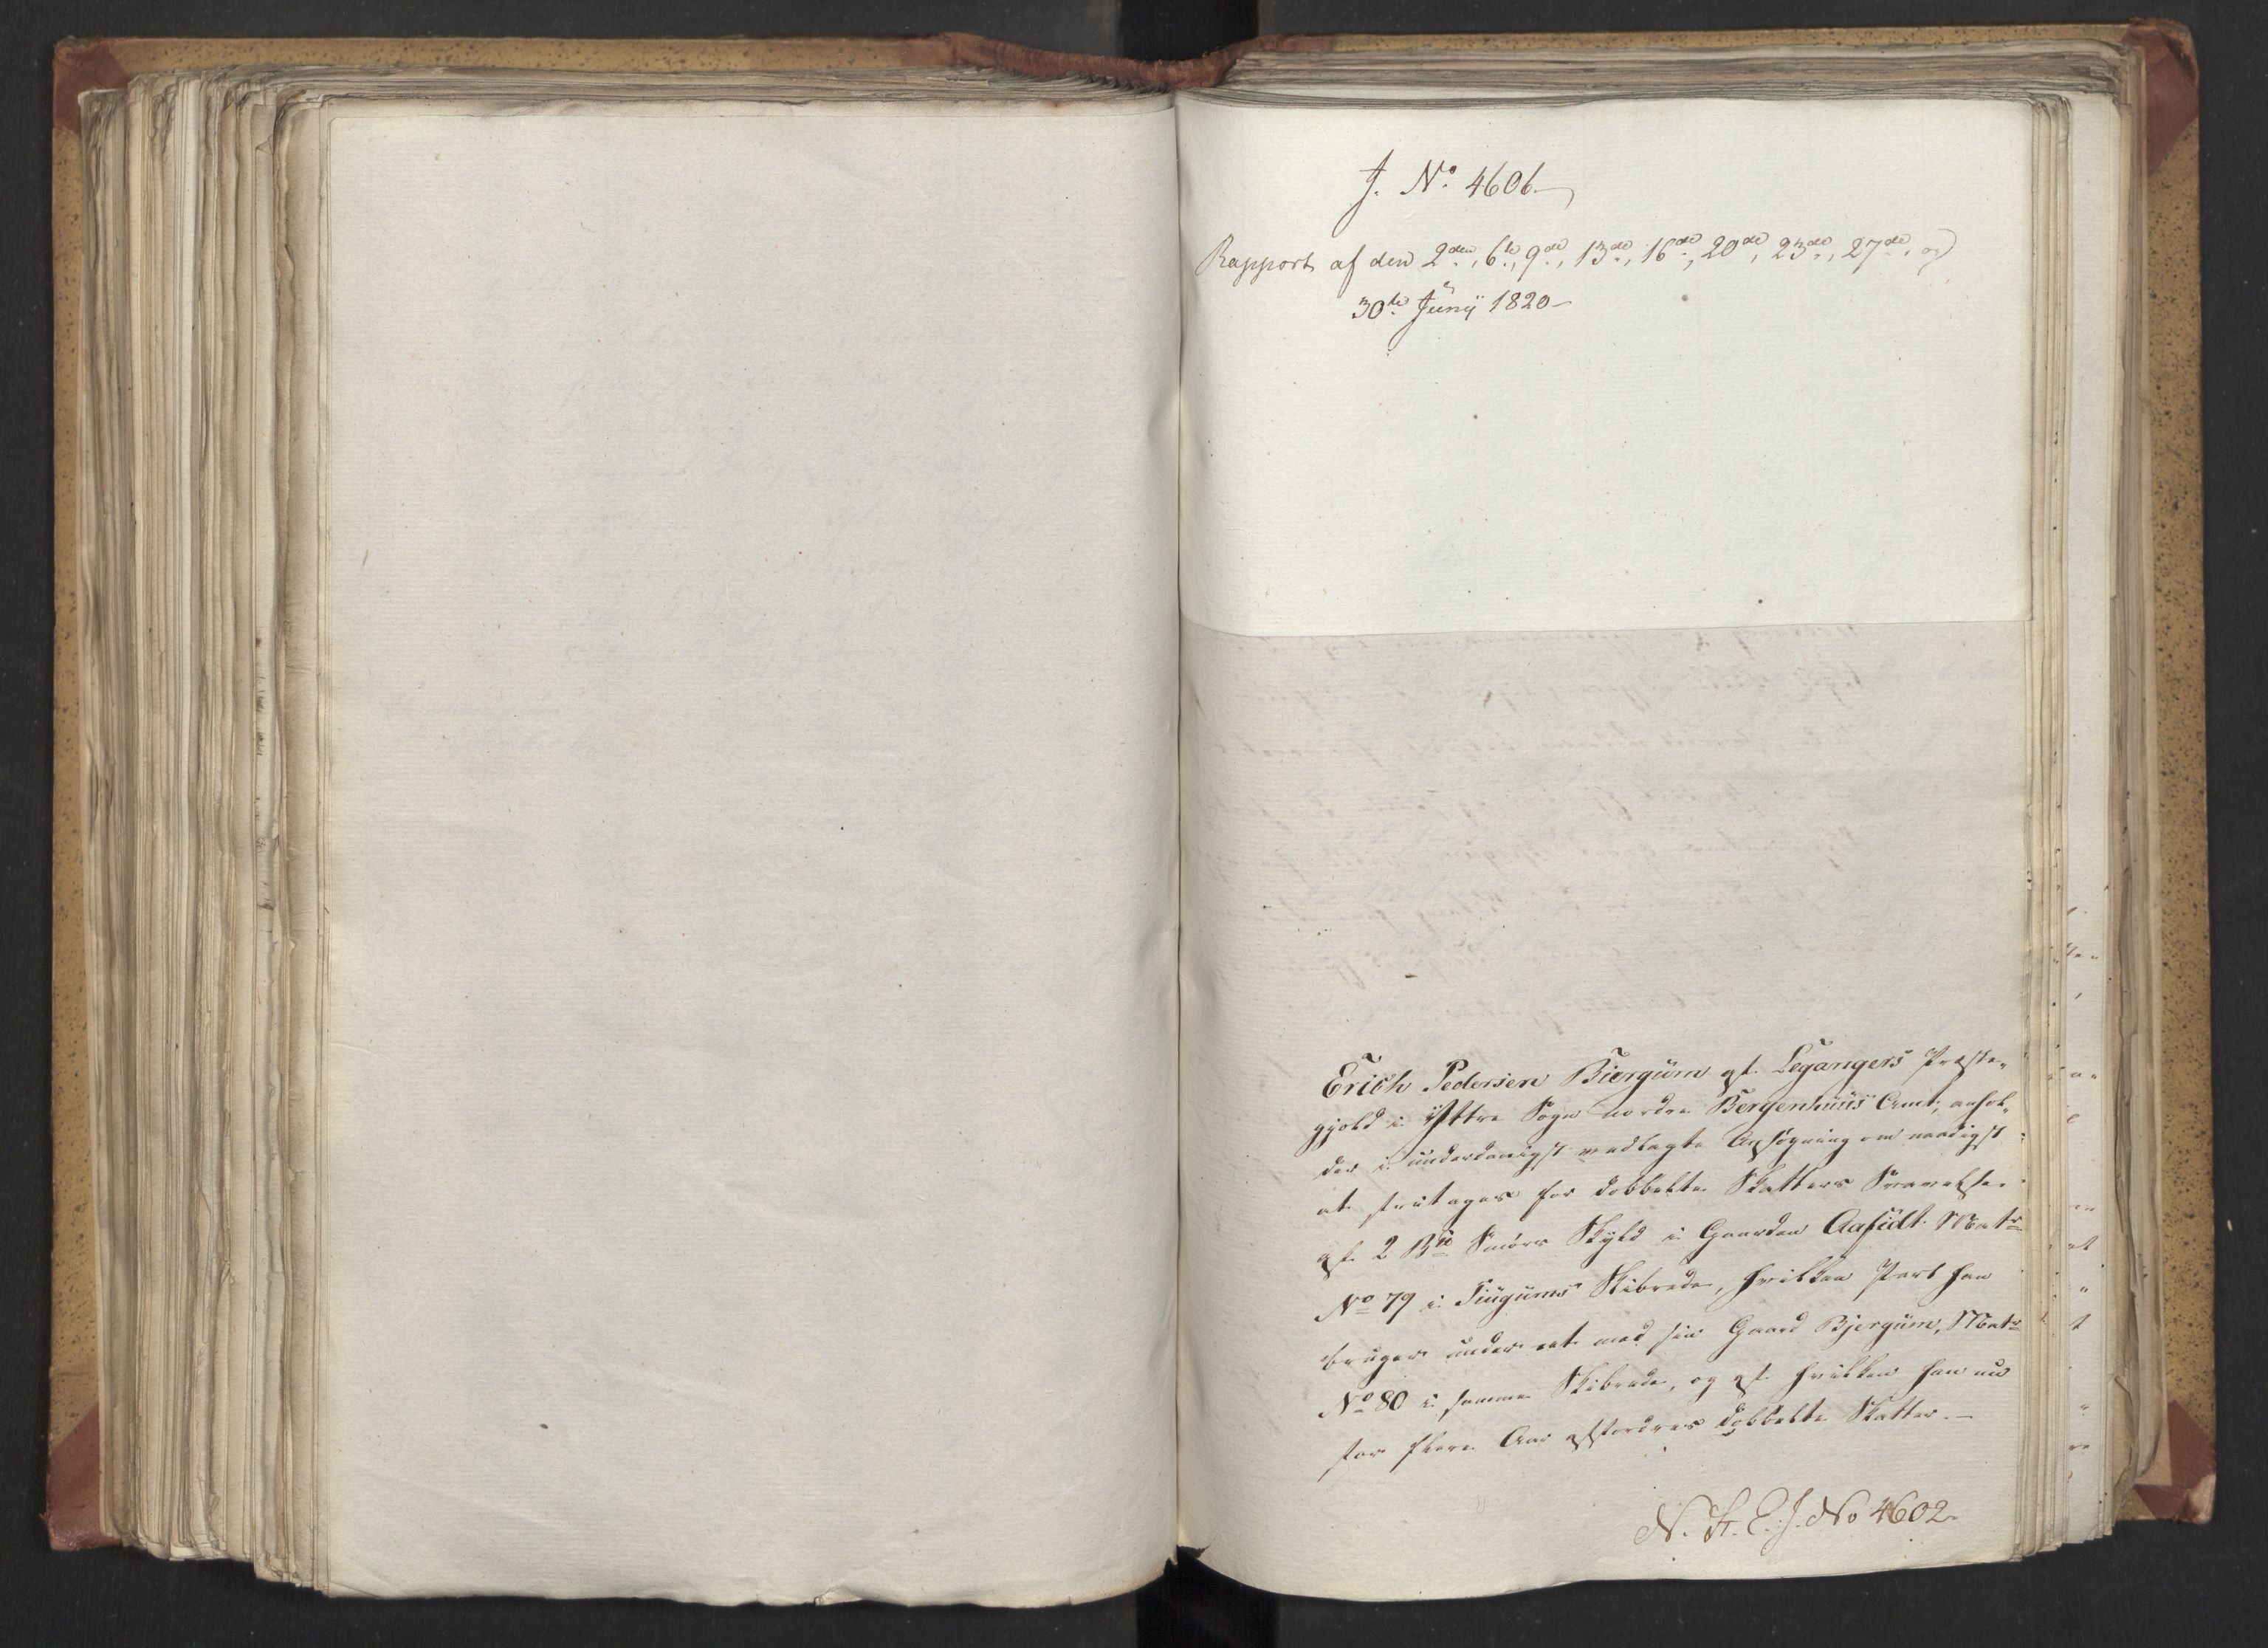 J. No. 4606
Rapport af den 2den, 6te, 9de, 13de, 16de, 20de, 23de, 27de, og
30te Junÿ 1820
Erich Pedersen Biergüm af Legangers Præste-
gjeld i Ÿttre Sogn nordre Bergenhuus Amt, anhol-
der i underdanigst vedlagte Ansøgning om naadigst
at fritages for dobbelte Skatters Svarelse
af 2 Bd Smørs Skyld i Gaarden Aafedt Matr
No 79 i Tiugums Skibrede, hvilken Part han
bruger under eet med sin Gaard Bjergüm, Matr
No 80 i samme Skibrede, og af hvilken han nu
for flere Aar affordres dobbelte Skatter. —
N. F. E. J. No 4602.